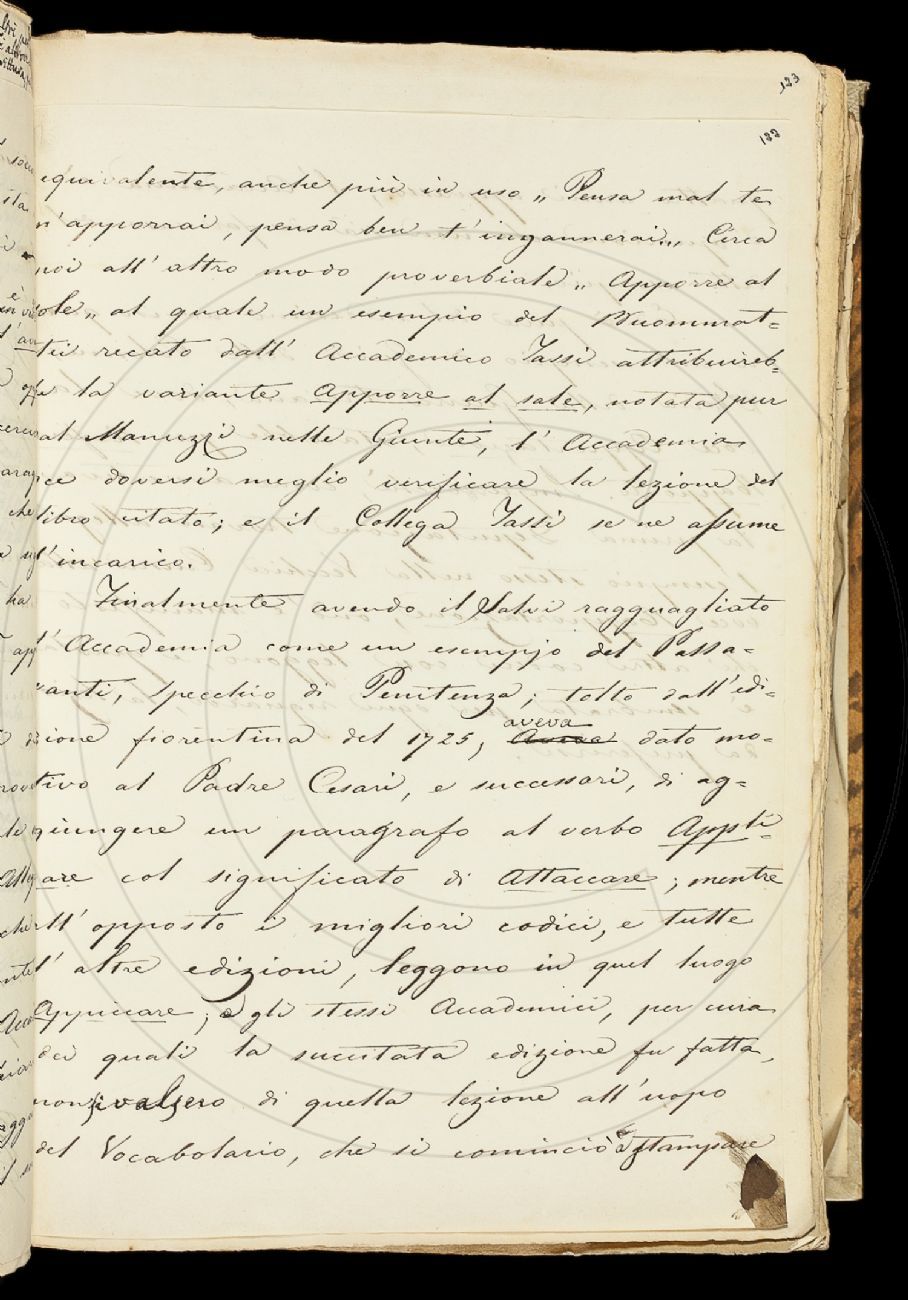 123
122
equivalente, anche più in uso „ Pensa mal te
n'apporrai, pensa ben t'ingannerai„, Circa
poi all'altro modo proverbiale „ Apporre al
sole „ al quale un esempio del Buommat-
tei recato dall'Accademico Tassi attribuireb-
be la variante Apporre al sale, notata pur
dal Manuzzi nelle Giunte, l'Accademia
dice doversi meglio verificare la lezione del
libro citato; e il Collega Tassi se ne assume
l'incarico.
Finalmente avendo il Salvi ragguagliato
l'Accademia come un esempjo del Passa-
vanti, Specchio di Penitenza; tolto dall'edi-
zione fiorentina del 1725, aveva dato mo-
tivo al Padre Cesari, e successori, di ag-
giungere un paragrafo al verbo Appli-
care col significato di Attaccare; mentre
all'opposto i migliori codici, e tutte
l'altre edizioni, leggono in quel luogo
Appiccare; e gli stessi Accademici, per cura
dei quali la succitata edizione fu fatta,
non si valsero di quella lezione all'uopo
del Vocabolario, che si cominciò a stampare